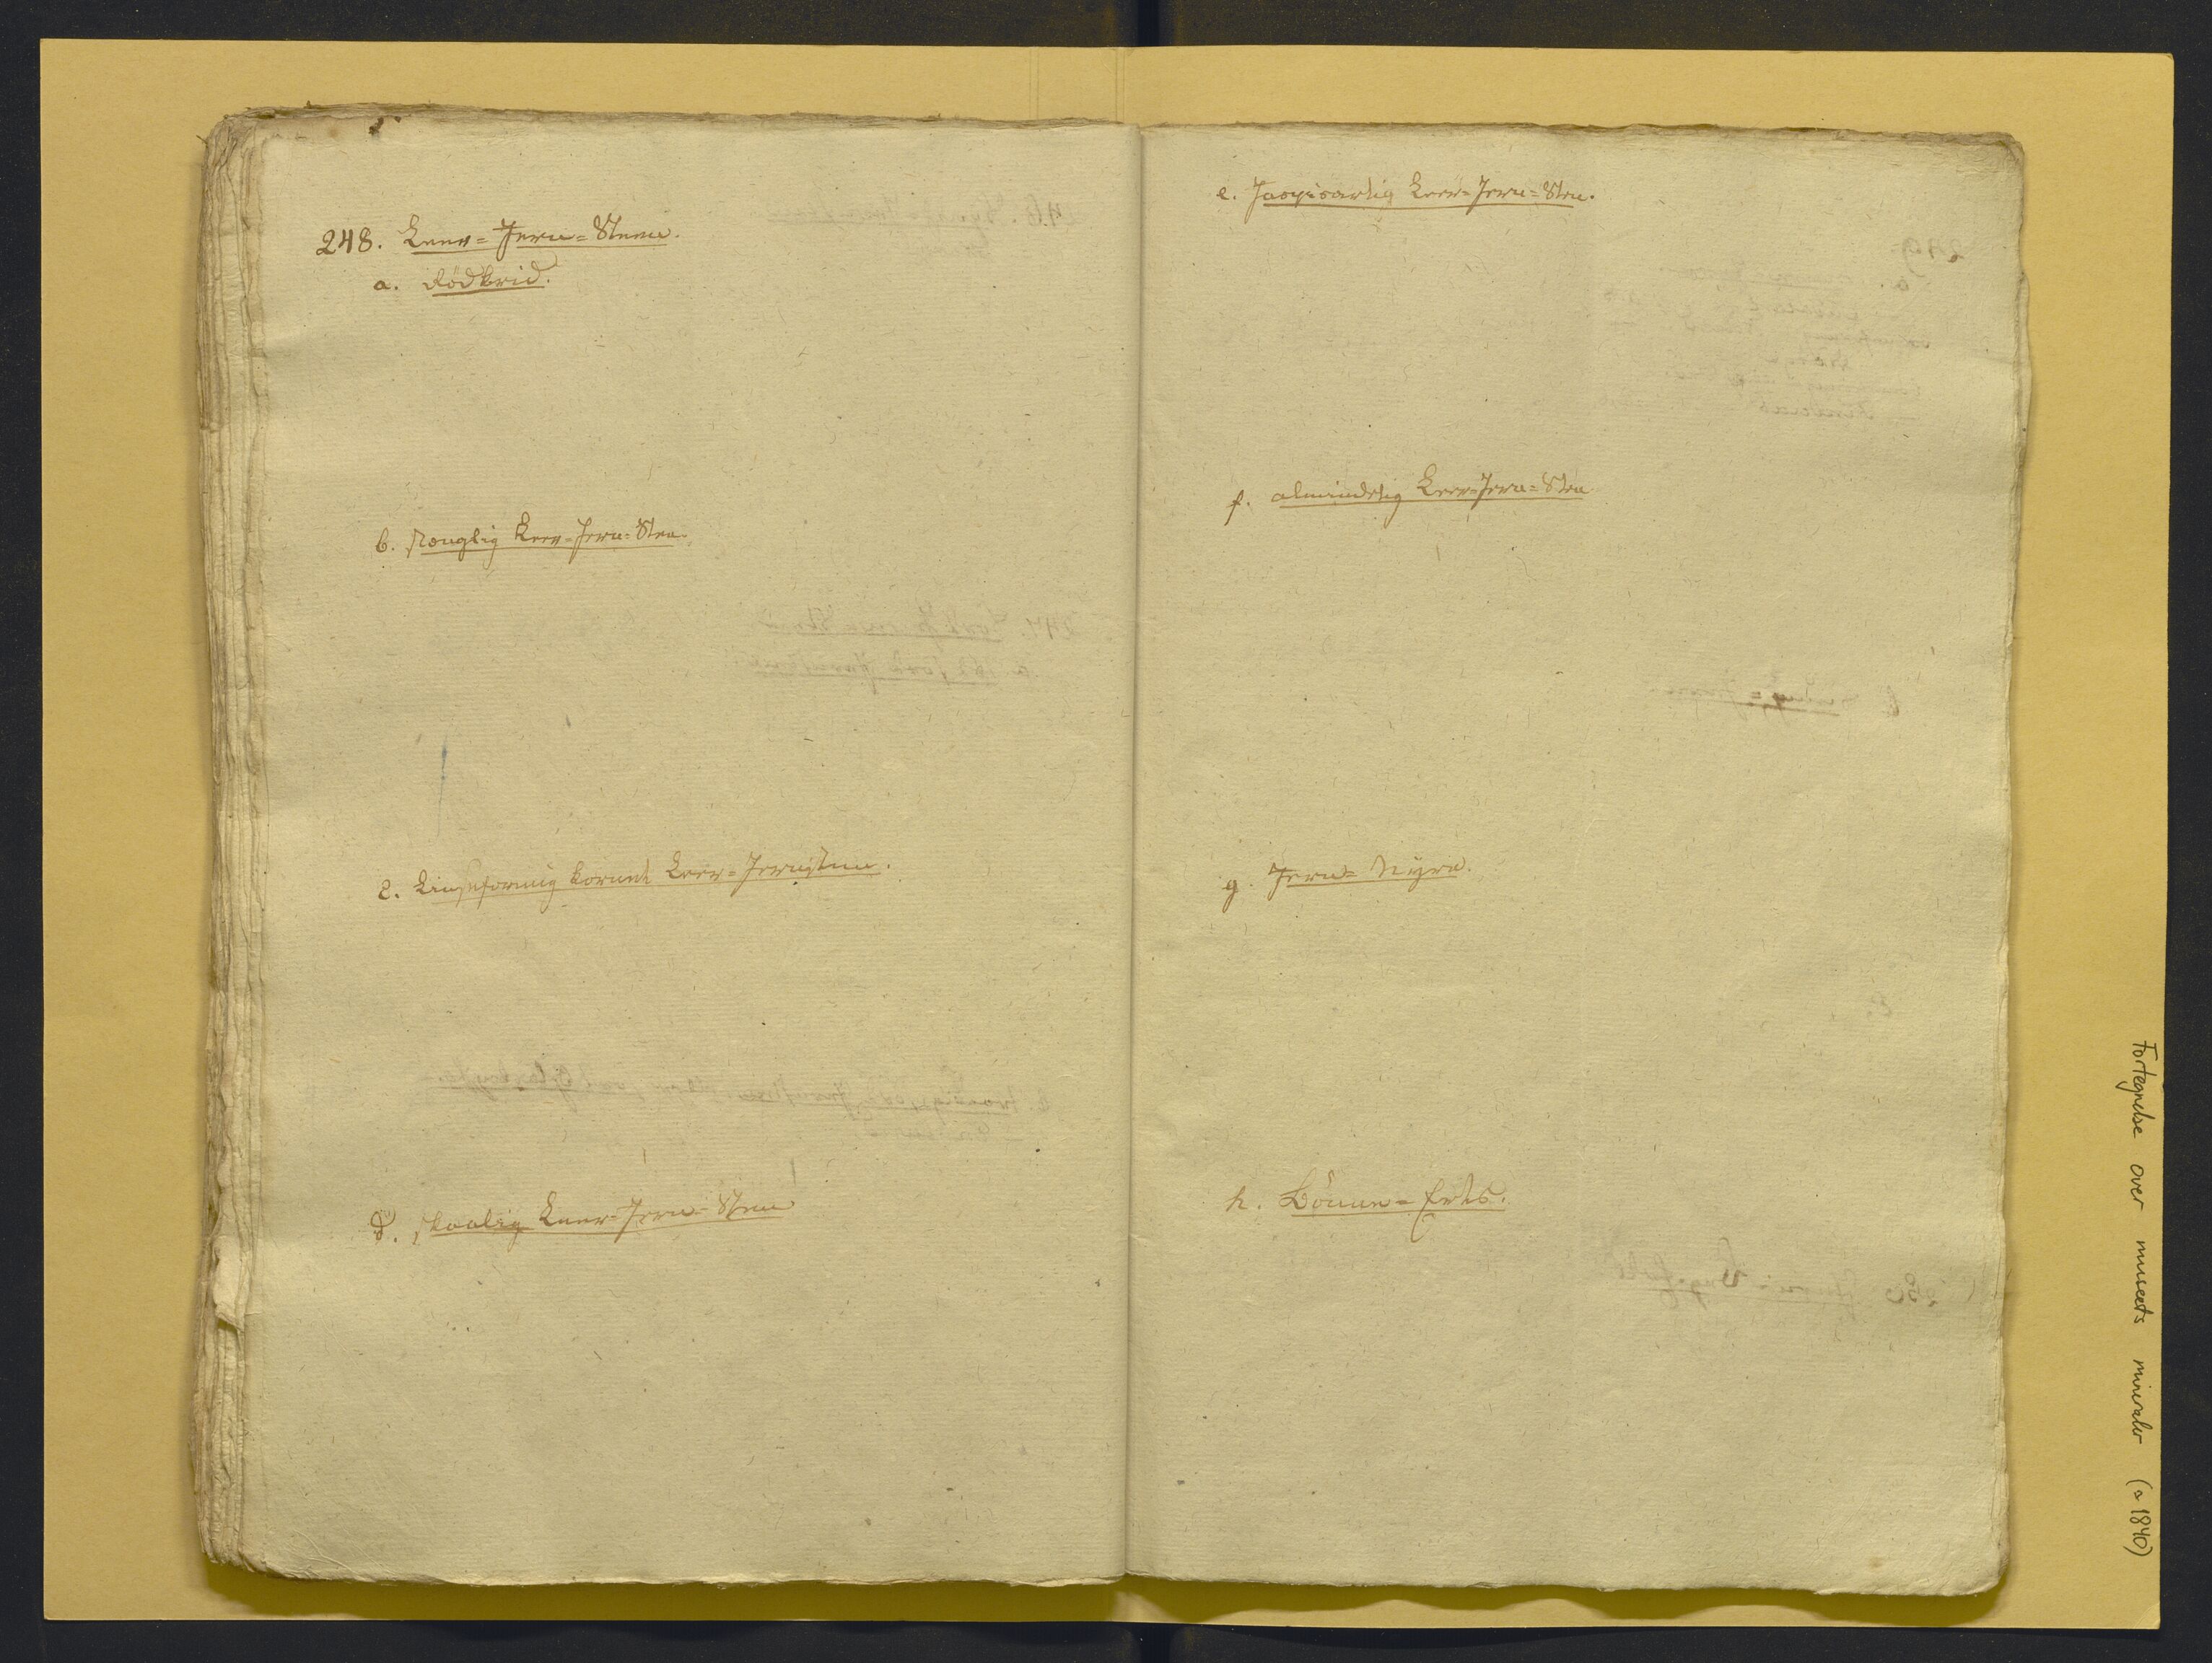 248. Leer=Jern=Steen.
a. Rødkrid.
b. stænglig Leer=Jern=Sten.
c. Linseformig kornet Leer=Jernsteen.
d. skaalig Leer=Jern=Steen
e. Jaspisartig Leer=Jern=Sten.
f. almindelig Leer=Jern=Sten
g. Jern=Nyre.
h. Bönne=Erts.
Fortegnelse over museets mineraler (ca 1840)